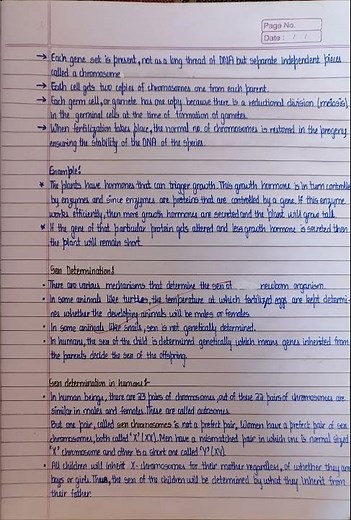 Page No.
Date: / /
→ Each gene set is present, not as a long thread of DNA but separate independent pieces
called a chromosome
→ Each cell gets two copies of chromosomes one from each parent.
→ Each germ cell, or gamete has one copy because there is a reductional division (meiosis),
in the germinal cells at the time of formation of gametes.
→ When fertilization takes place, the normal no of chromosomes is restored in the progeny,
ensuring the stability of the DNA of the species.
Example:
* The plants have hormones that can trigger growth. This growth hormone is in turn controlled
by enzymes and since enzymes are proteins that are controlled by a gene. If this enzyme
works efficiently, then more growth hormones are secreted and the plant will grow tall.
* If the gene of that particular protein gets altered and less growth hormone is secreted then
the plant will remain short.
Sex Determination:
• There are various mechanisms that determine the sex of newborn organism.
• In some animals like turtles, the temperature at which fertilized eggs are kept determi-
nes whether the developing animals will be males or females.
• In some animals like snails, sex is not genetically determined.
• In humans, the sex of the child is determined genetically which means genes inherited from
the parents decide the sex of the offspring.
Sex determination in humans:-
• In human beings, there are 23 pairs of chromosomes, out of these 22 pairs of chromosomes are
similar in males and females. These are called autosomes.
But one pair, called sex chromosomes is not a perfect pair. Women have a perfect pair of sex
chromosomes, both called 'X' (XX). Men have a mismatched pair in which one is normal sized
'X' chromosome and other is a short one called 'Y' (XY).
• All children will inherit X- chromosomes for their mother regardless, of whether they are
boys or girls. Thus, the sex of the children will be determined by what they inherit from
their father